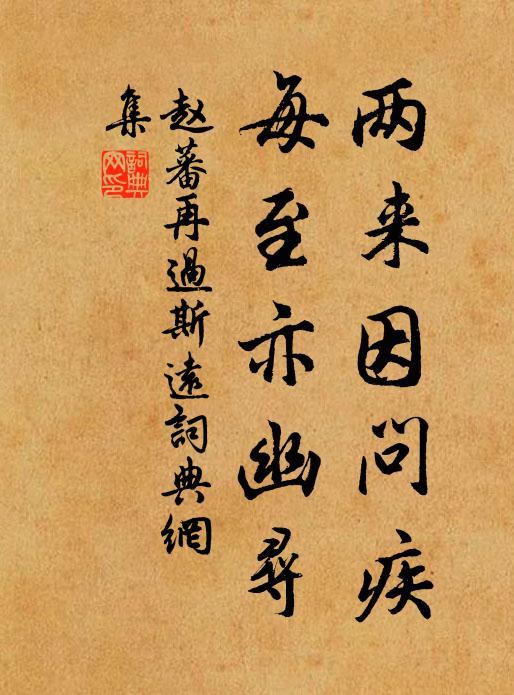 两来因问疾
每至亦幽寻
赵蕃再過斯遠詞典網
集
詞典
网印